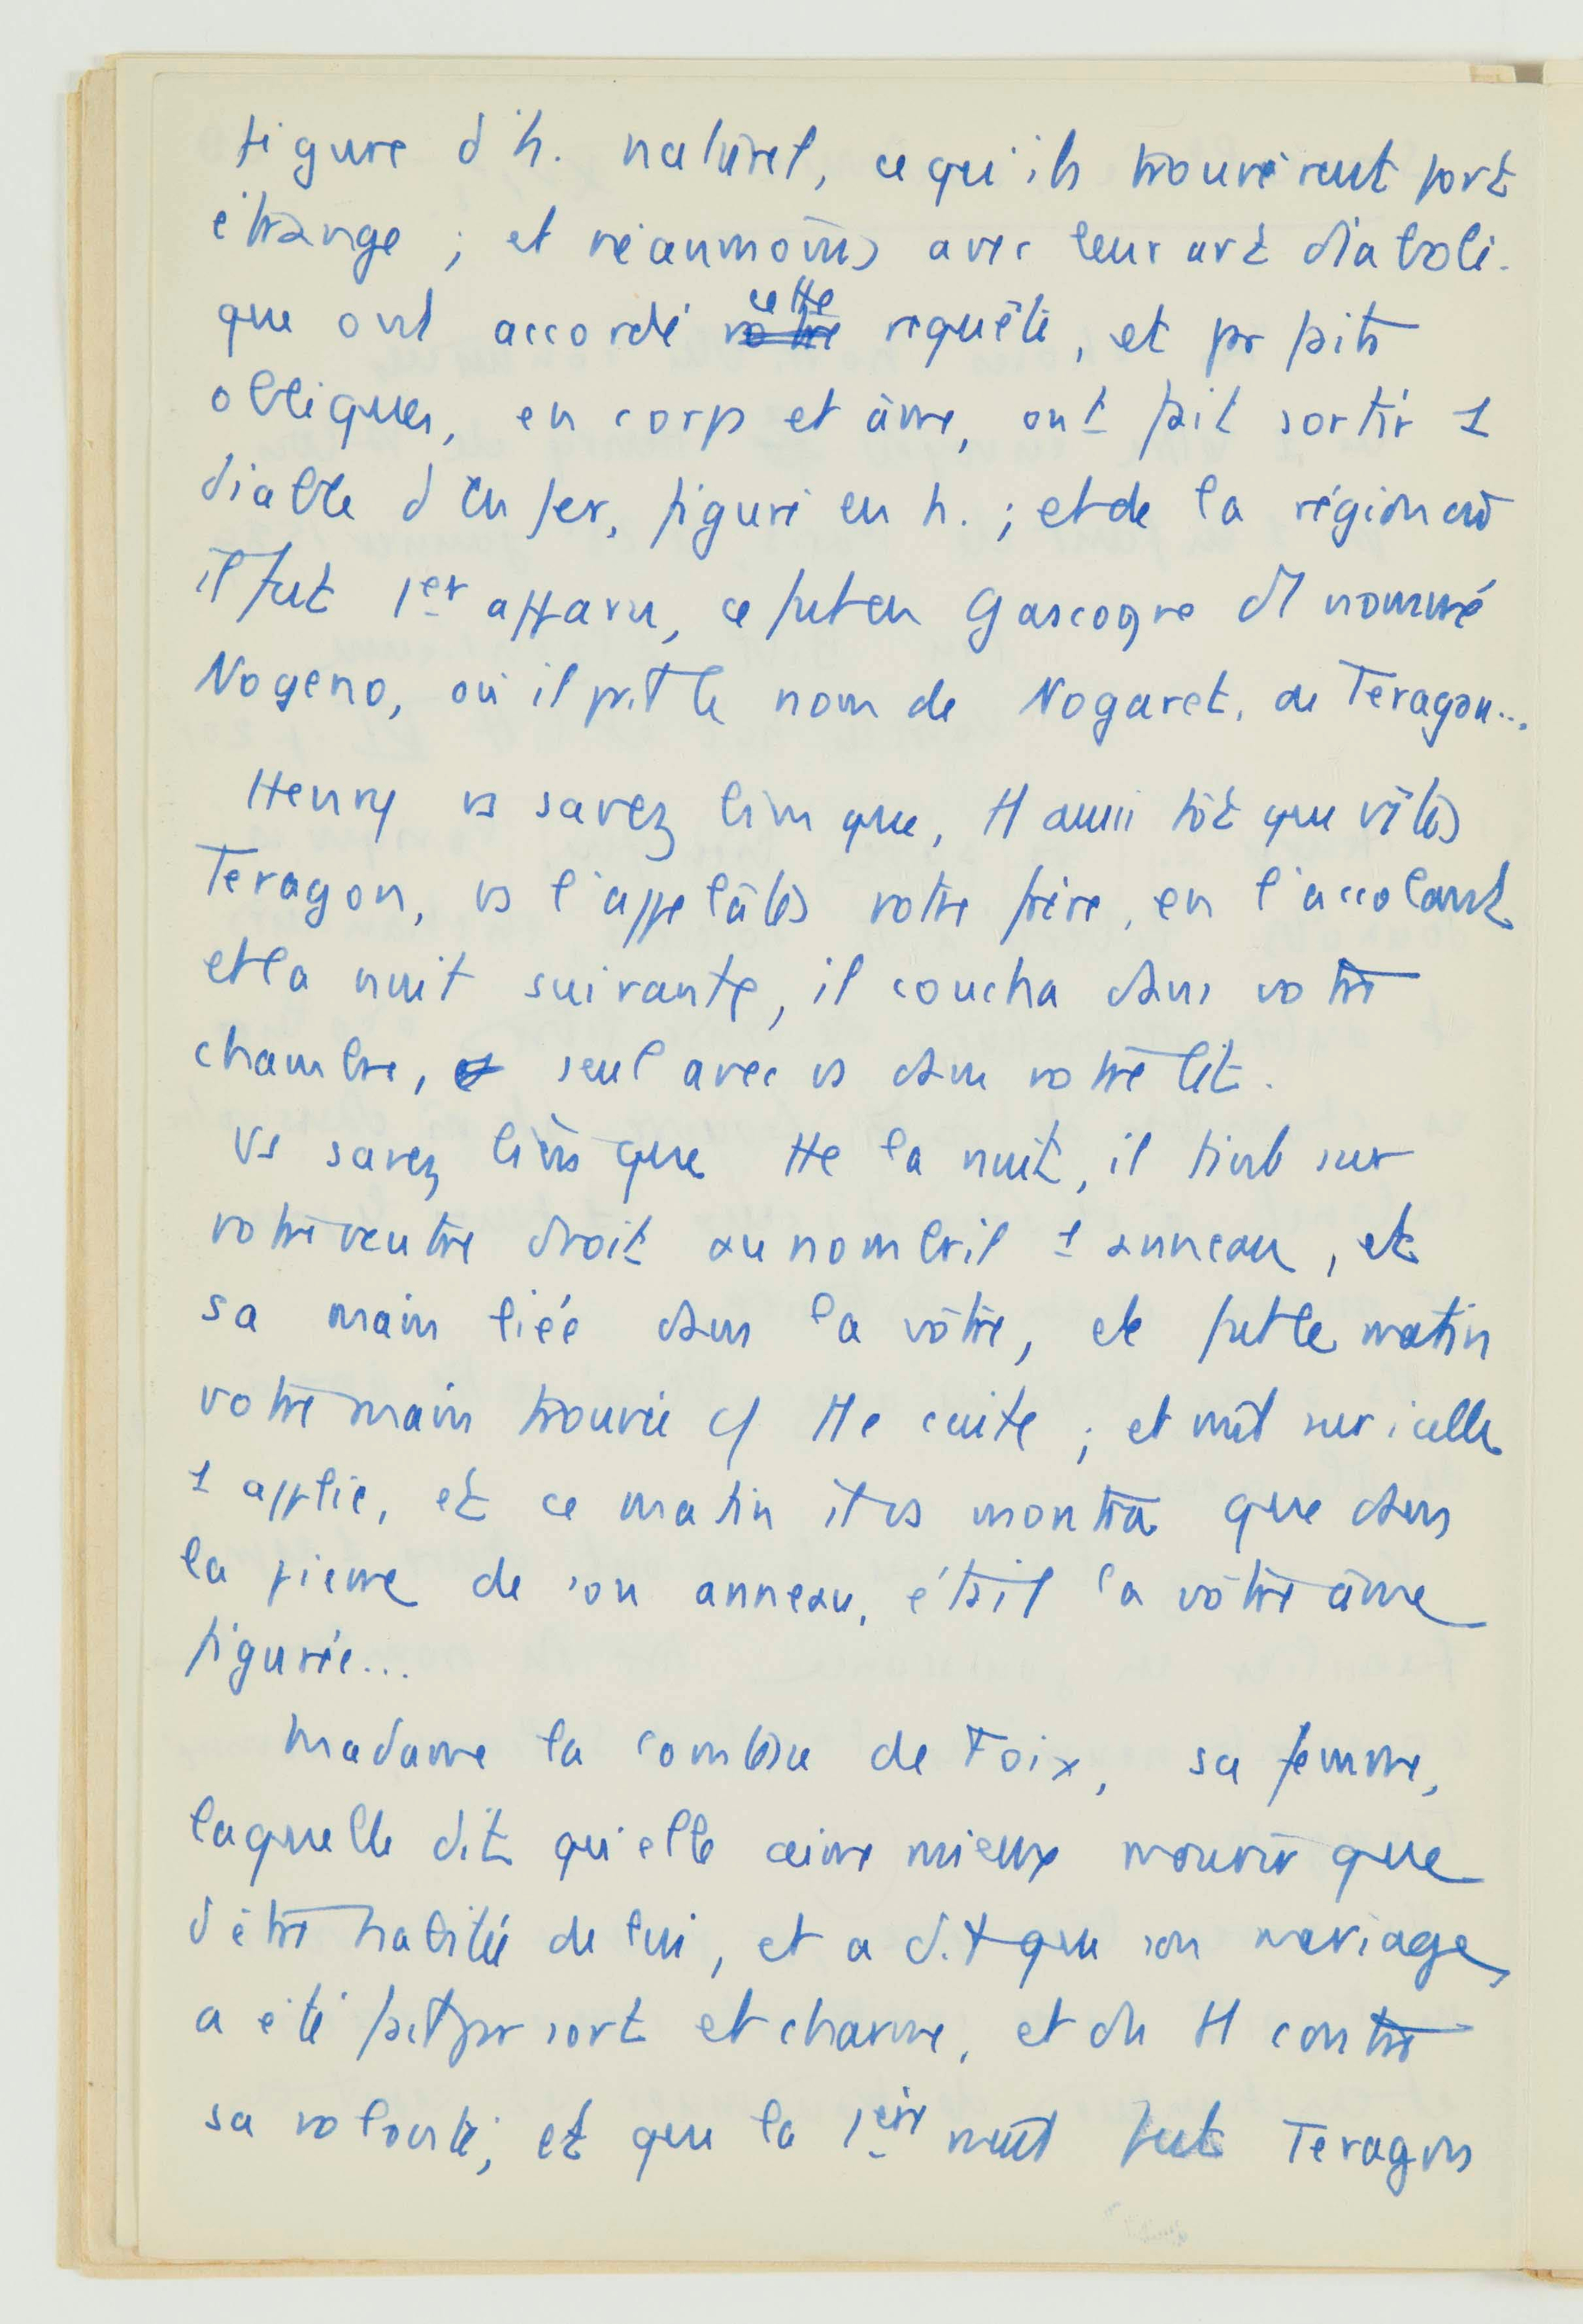 figure d'h. naturel, ce qu'ils trouvèrent fort
étrange ; et néanmoins avec leur art diaboli-
que ont accordé votre cette requête, et pr faits
obliques, en corps et âme, ont fait sortir 1
diable d'Enfer, figuré en h. ; et de la région où
il fut 1er apparu, ce fut en Gascogne et nommé
Nogeno, où il prit le nom de Nogaret, de Teragon...
Henry vs savez bien que, tt aussitôt que vîtes
Teragon, vs l'appelâtes votre frère, en l'accolant
et la nuit suivante, il coucha dans votre
chambre, seul avec vs dans votre lit.
Vs savez bien que tte la nuit, il tint sur
votre ventre droit au nombril 1 anneau, et
sa main liée dans la vôtre, et fut le matin
votre main trouvée tte cuite ; et mit sur icelle
1 applic, et ce matin il vs montra que dans
la pierre de son anneau, était la vôtre âme
figurée...
Madame la comtesse de Foix, sa femme,
laquelle dit qu'elle aime mieux mourir que
d'être habitée de lui, et a dit que son mariage
a été fait pr sort et charme, et du tt contre
sa volonté ; et que la 1ère nuit fut Teragon